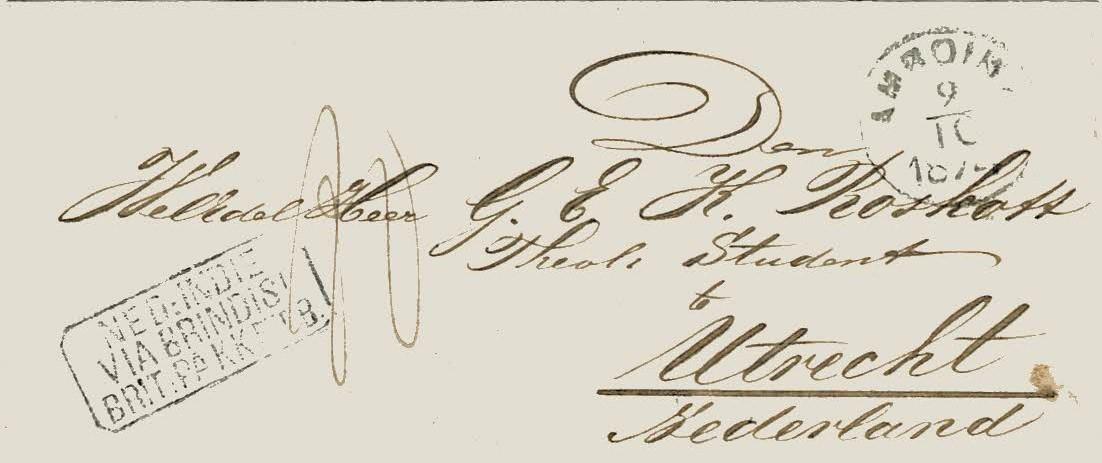 AMBOIN
9
10
1874
Den
WelEdel Heer G. E. K. Roskott
Theol. Student
te
Utrecht
Nederland
NED: INDIE
VIA BRINDISI
BRIT: PAKKETB.